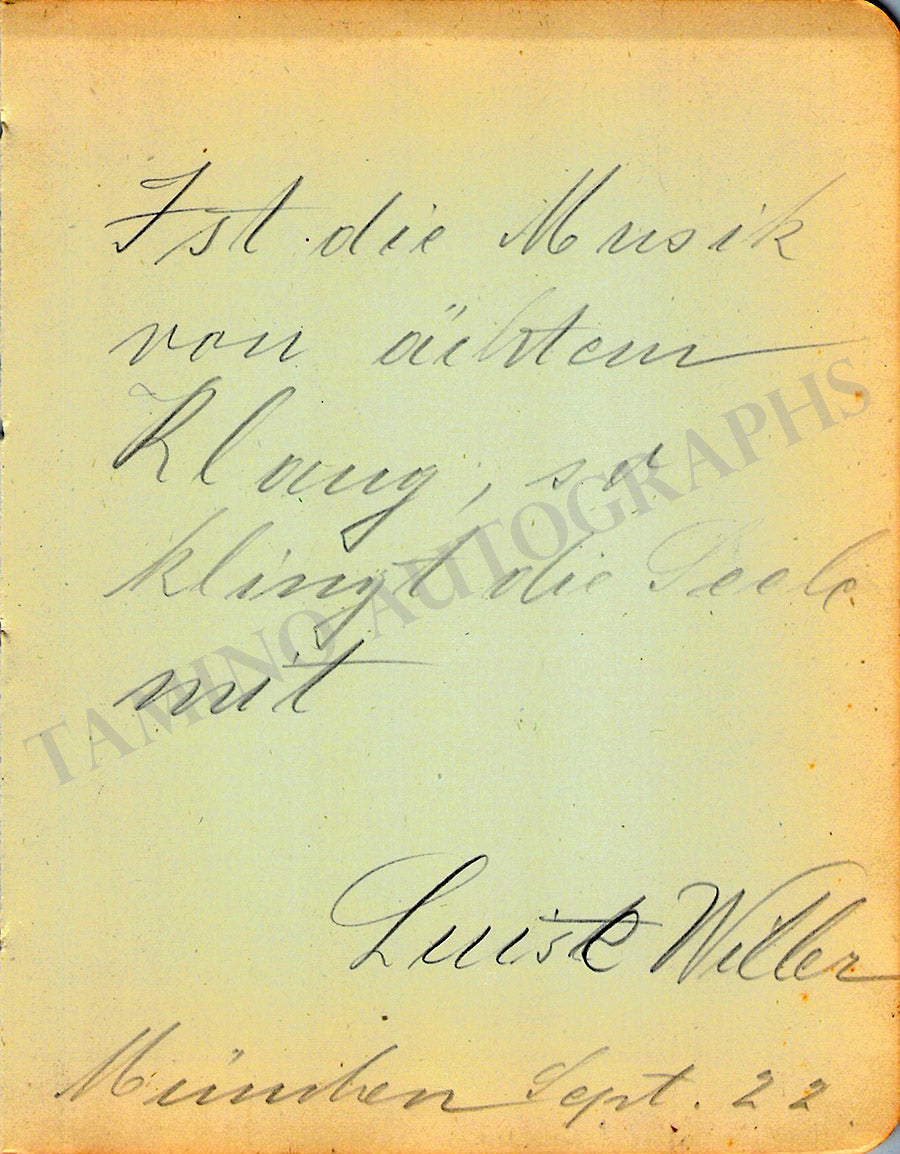 Ist die Musik
von ächtem
Klang, so
klingt die Seele
mit
TAMINO AUTOGRAPHS
Luise Willer
München Sept. 22.